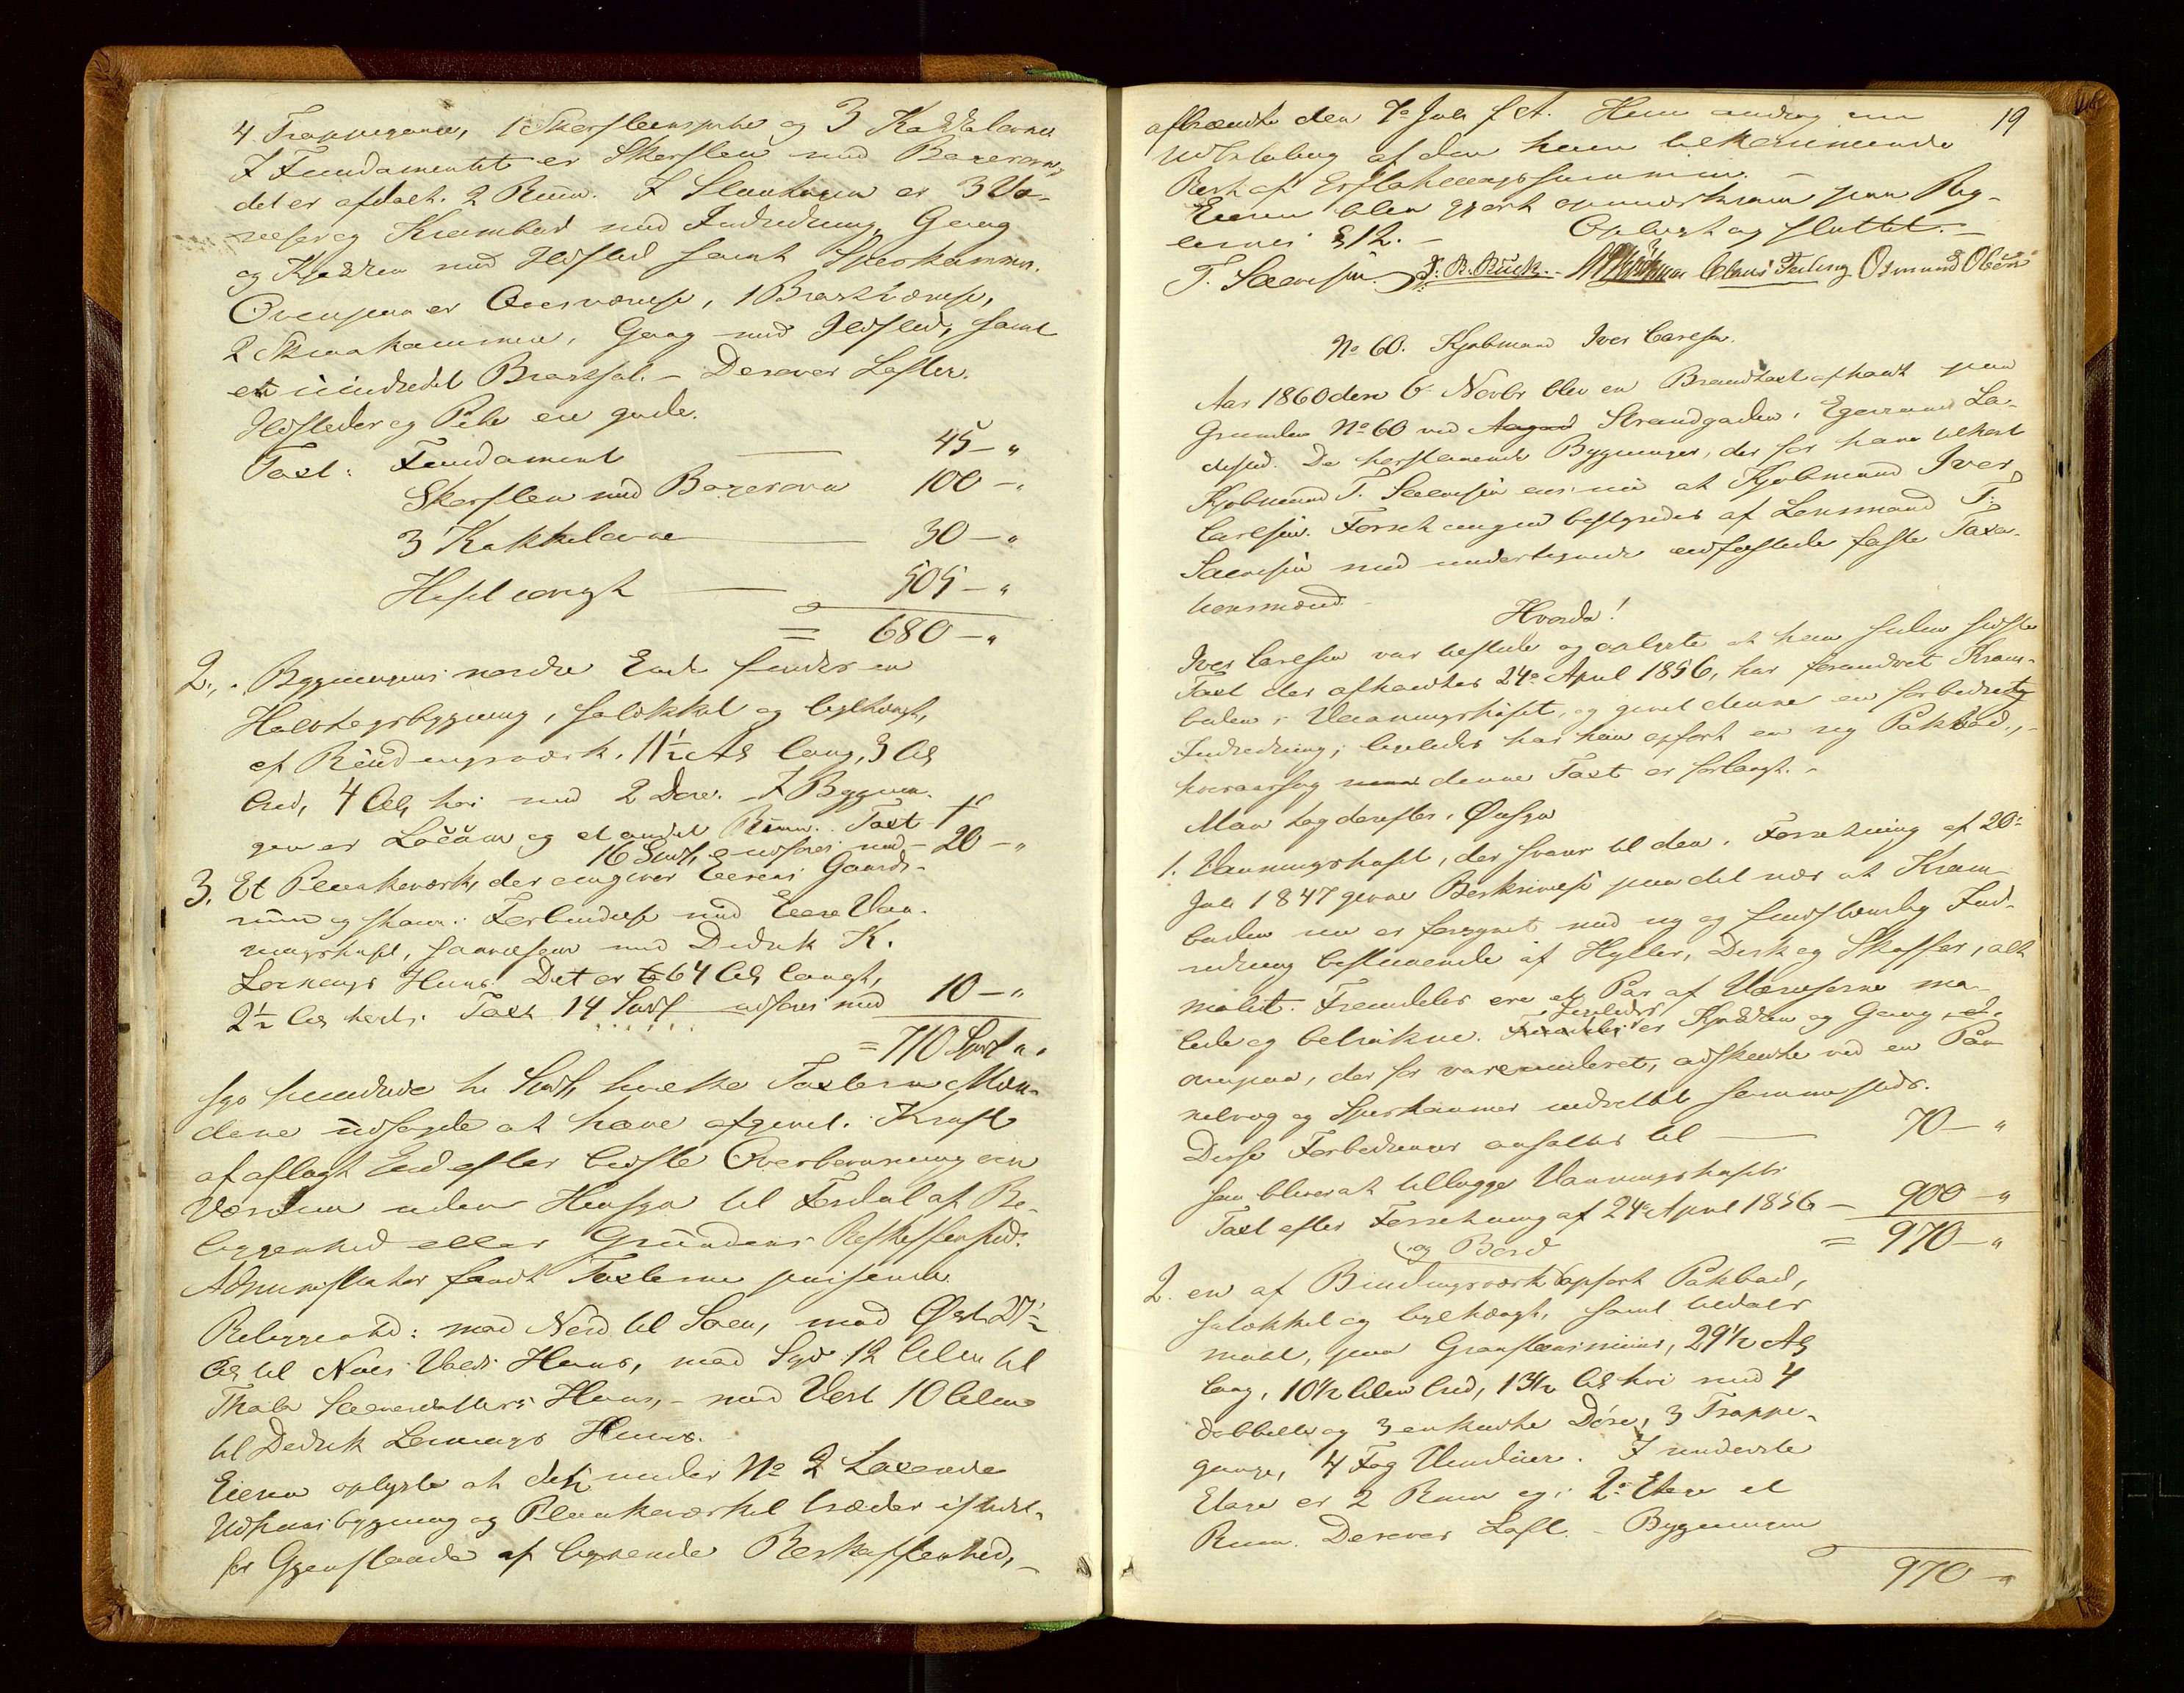 4 Trappegange, 1 Skorsteenspibe og 3 Kakkelovne
I Fundamentet er Skorsteen med Bagerovn,
det er afdelt i 2 Rum. I Stueetagen er 3 Væ-
relser og Krambod med Indredning, Gang
og Kjøkken med Ildsted samt Spiskammer.
Ovenpaa er Qvistværelse, 1 Brystværelse,
2 Skraakammere, Gang med Ildsted, samt
et uindredet Brystsal. - Derover Lofter.
Ildsteder og Pibe ere gode.
Taxt: Fundament 45 - "
Skorsteen med Bagerovn 100 - "
3 Kakkelovne 30 - "
Huset iøvrigt 505 - "
= 680 - "
2., i Bygningens nordre Ende findes en
Halvtagsbygning, halvtækket og beklædt,
af Bindingsværk. 11½ Al lang, 3 Al
bred, 4 Al høi med 2 Døre. I Bygnin-
gen er Locum og et andet Rum. Taxt
16 Spd, udføres med - 20 - "
3. Et Plankeværk, der omgiver Eierens Gaards-
rum og staaer i Forbindelse med Eiere Vaa-
ningshuset, saavelsom med Didrik K.
Lornings Huus. Det er 64 Al langt,
2½ Al høit. Taxt 14 Spd udføres med 10 - "
= 710 Spd "
syv hundrede ti Spd, hvilke Taxter Mæn-
dene udsagde at have afgivet i Kraft
af aflagt Eed efter bedste Overbeviisning om
Værdien uden Hensyn til Fordel af Be-
liggenhed eller Grundens Beskaffenhed.
Administrator fandt Taxterne passende.
Beliggenhed: mod Nord til Søen, mod Øst 27½
Al til Huus, mod Syd 12 Alen til
Thala Huus, - mod Vest 10 Alen
til Didrik Lornings Huus.
Eieren oplyste at det under No 2 Taxerede
Udhuusbygning og Plankeværket træder istedet-
for Gjenstande af lignende Beskaffenhed, -
19
afbrændte den 7de Juli f. A. Han androg om
Udbetaling af den ham tilkommende
Rest af Erstatningssummen. -
Eieren blev gjort opmærksom paa Reg-
lernes § 12. - Oplæst og sluttet. -
T. Salvesen. Claus Feyling Osmund Olsen
No 60. Kjøbmand Iver Carlsen.
Aar 1860 den 6 Novbr blev en Brandtaxt afholdt paa
Grunden No 60 ved Strandgaden i Egersund La-
dested. De herstaaende Bygninger, der før have tilhørt
Kjøbmand T. Salvesen eies nu af Kjøbmand Iver
Carlsen. Forretningen bestyredes af Lensmand T.
Salvesen med undertegnede eedfæstede faste Taxa-
tionsmænd. -
Hvorda!
Iver Carlsen var tilstede og oplyste at han siden sidste
Taxt der afholdtes 24de April 1856, har forandret Kram-
boden i Vaaningshuset, og givet denne en forbedret
Indredning; ligeledes har han opført en ny Pakbod, -
hvoraarsag denne Taxt er forlangt. -
Man tog derefter i Øiesyn
1. Vaaningshuset, der svarer til den i Forretning af 20de
Juli 1847 givne Beskrivelse paa det nær at Kram-
boden nu er forsynet med ny og fuldstændig Ind-
redning bestaaende af Hyller, Disk og Skuffer, alt
malet. Fremdeles ere et Par af Værelserne ma-
lede og betrukne. Ligeledes er Kjøkken og Gang
ovenpaa, der før vare uindredet, adskildte ved en Pa-
nelvæg og Spiskammer indrettet sammesteds.
Disse Forbedringer ansattes til 70 - "
som bliver at tillægge Vaaningshusets
Taxt efter Forretning af 24de April 1856 - 900 - "
= 970 - "
og Bord
2. en af Bindingsværk opført Pakbod,
halvtækket og beklædt, samt tildeels
malt, paa Graasteensmuur, 29½ Al
lang, 10½ Alen bred, 13½ Al høi med 4
dobbelte og 3 enkelte Døre, 3 Trappe-
gange, 4 Fag Vinduer. I underste
Etage er 2 Rum og i 2den Etage et
Rum. Derover Loft. - Bygningen
970 - "